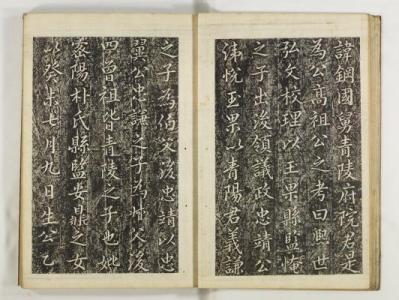 諱鋼國舅青陵府院君是
為公高祖公之考曰興世
弘文校理以玉果縣監
之子出後領議政忠靖公
諱悅玉果以青陽君義謙
之子為伯父後忠靖以忠
翼公忠謙之子為叔父後
四曾祖皆青陵之子也妣
密陽朴氏縣監安鼎之女
以癸未七月九日生公乙